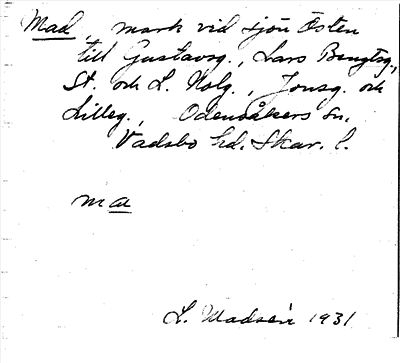 Mad, mark vid sjön Östen
till Gustavsg., Lars Bengtsg.,
St. och L. Holg., Jonsg. och
Lilleg., Odensåkers sn.
Vadsbo hd. Skar. l.
ma
L. Madsén 1931